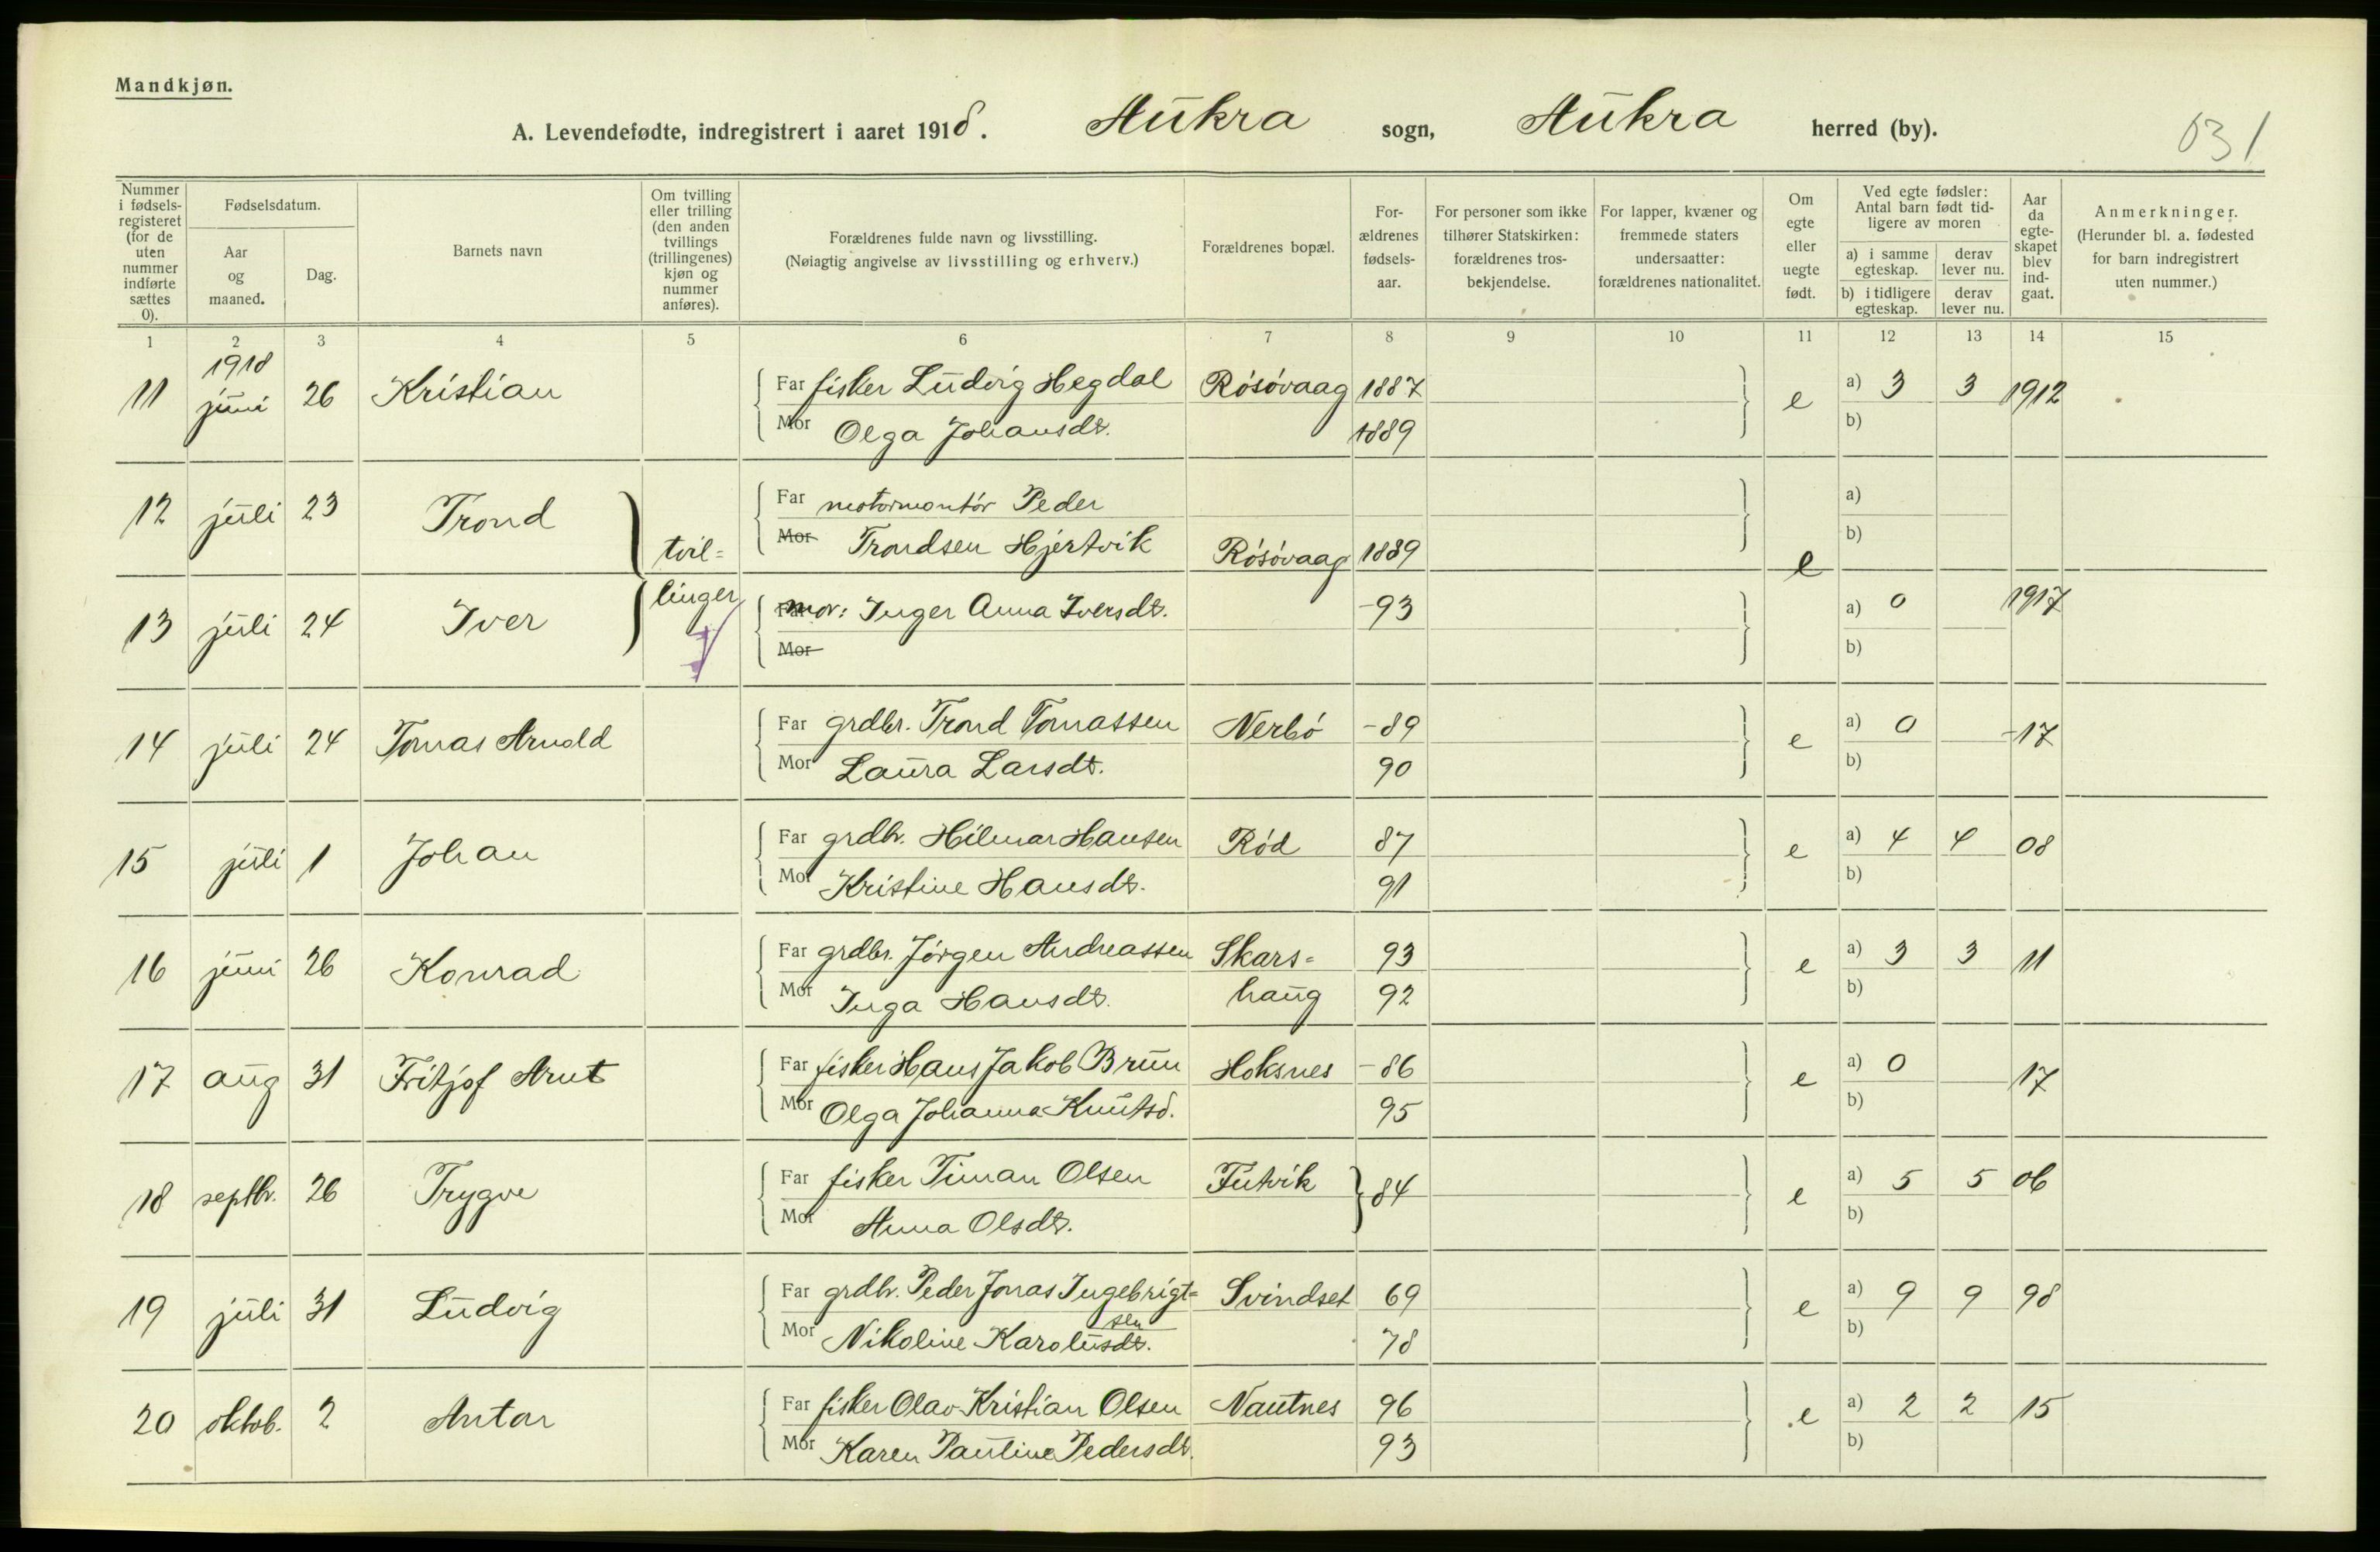 Mandkjøn.
A. Levendefødte, indregistrert i aaret 1918. Aukra sogn, Aukra herred (by). 031
Nummer i fødselsregisteret (for de uten nummer indførte sættes 0).
Fødselsdatum.
Aar og maaned.
Dag.
Barnets navn
Om tvilling eller trilling (den anden tvillings (trillingenes) kjøn og nummer anføres).
Forældrenes fulde navn og livsstilling.
(Nøiagtig angivelse av livsstilling og erhverv.)
Forældrenes bopæl.
Forældrenes fødselsaar.
For personer som ikke tilhører Statskirken: forældrenes trosbekjendelse.
For lapper, kvæner og fremmede staters undersaatter: forældrenes nationalitet.
Om egte eller uegte født.
Ved egte fødsler: Antal barn født tidligere av moren
a) i samme egteskap. derav lever nu.
b) i tidligere egteskap. derav lever nu.
Aar da egteskapet blev indgaat.
Anmerkninger.
(Herunder bl. a. fødested for barn indregistrert uten nummer.)
1 2 3 4 5 6 7 8 9 10 11 12 13 14 15
1918
11 juni 26 Kristian Far fisker Ludvig Hegdal Rösövaag 1887 e a) 3 3 1912
Mor Olga Johansdt. 1889 b)
12 juli 23 Trond Far motormontör Peder a)
tvil= Mor Trondsen Hjertvik Rösövaag 1889 e b)
13 juli 24 Iver linger Far mor: Inger Anna Iversdt. -93 a) 0 1917
Mor b)
14 juli 24 Tomas Arnold Far grdbr. Trond Tomassen Nerbö -89 e a) 0 -17
Mor Laura Larsdt. 90 b)
15 juli 1 Johan Far grdbr. Hilmar Hansen Röd 87 e a) 4 4 08
Mor Kristine Hansdt. 91 b)
16 juni 26 Konrad Far grdbr. Jörgen Andreassen Skars= 93 e a) 3 3 11
Mor Inga Hansdt. haug 92 b)
17 aug 31 Fritjof Arnt Far fisker Hans Jakob Brun Hoksnes -86 e a) 0 17
Mor Olga Johanna Knutsd. 95 b)
18 septbr. 26 Trygve Far fisker Timan Olsen Futvik 84 e a) 5 5 06
Mor Anna Olsdt. b)
19 juli 31 Ludvig Far grdbr. Peder Jonas Ingebrigt= Svindset 69 e a) 9 9 98
sen
Mor Nikoline Karolusdt. 78 b)
20 oktob. 2 Anton Far fisker Olav Kristian Olsen Nautnes 96 e a) 2 2 15
Mor Karen Pauline Pedersdt. 93 b)